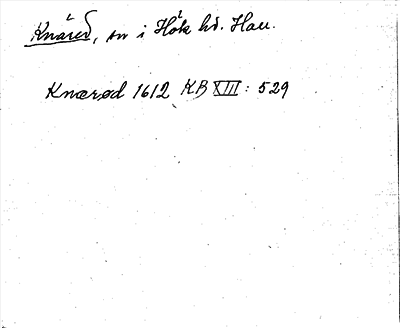 Knäred, sn i Hök hd. Hall.
Knærød 1612 KB XIII: 529